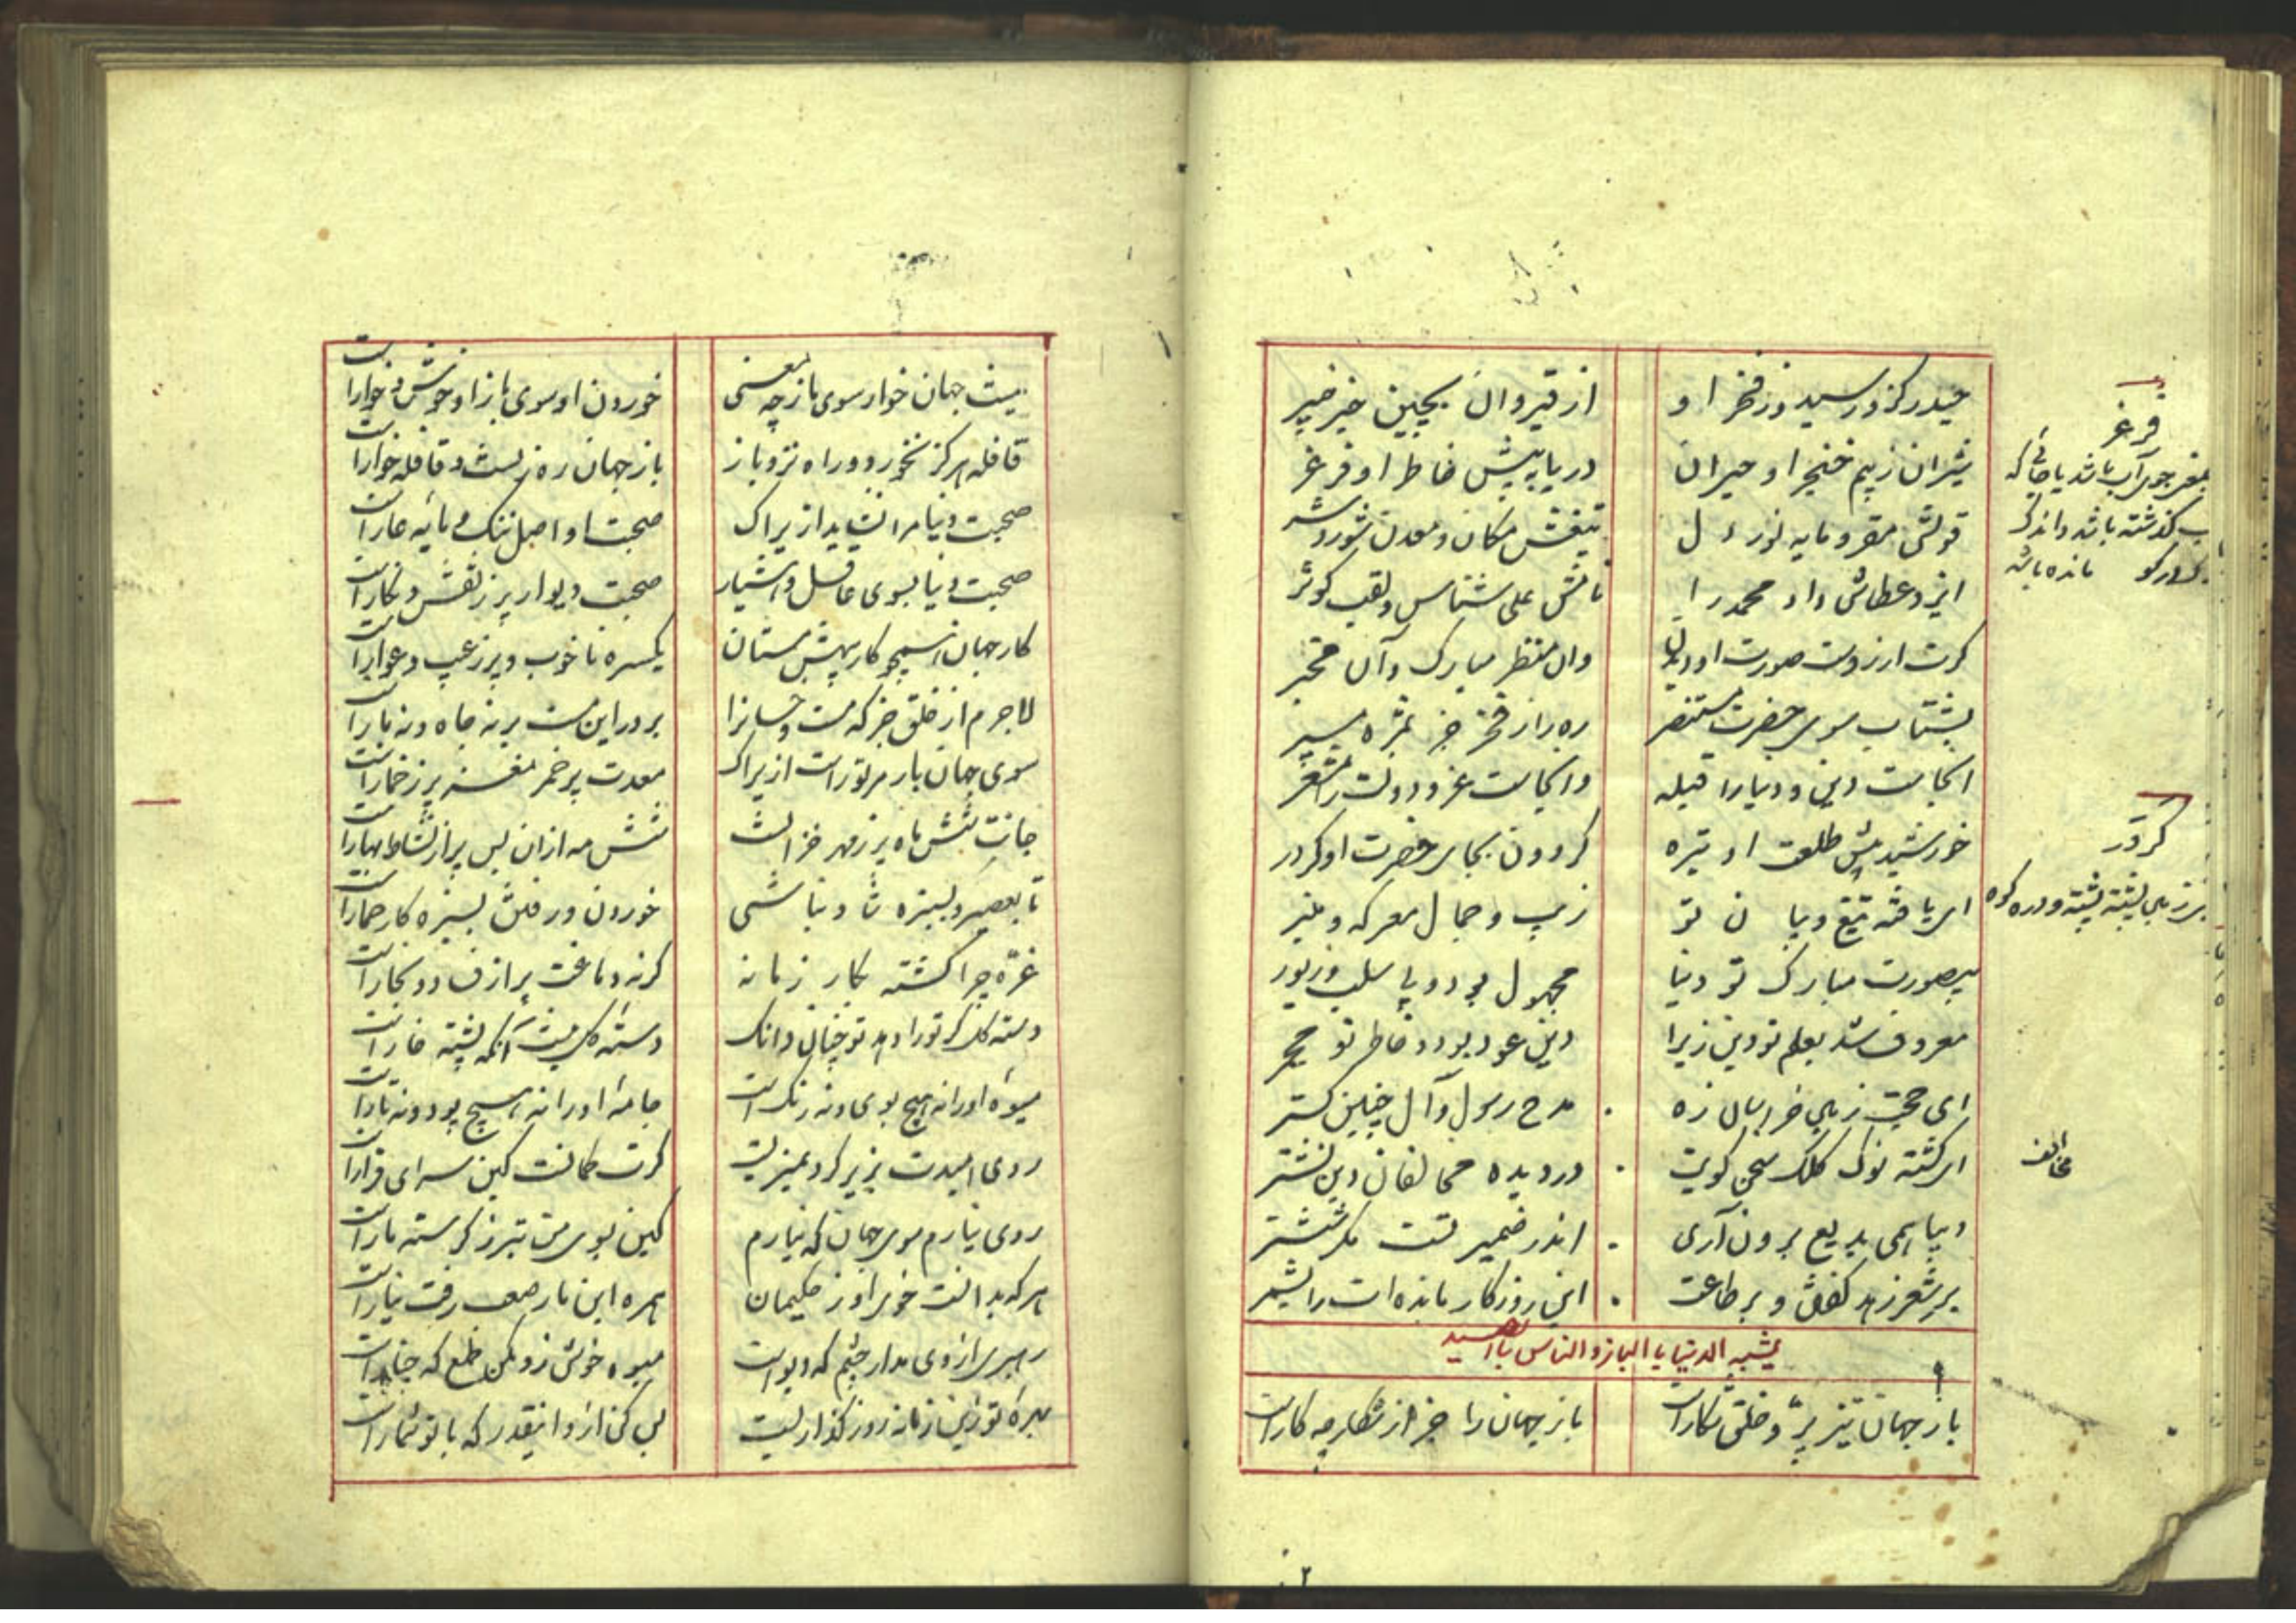 حیدر کزو رسید وز فخر او
از قیروان بچین خبر خیبر
شیران ز بیم خنجر او حیران
دریا به پیش خاطر او فرغر
قولش مقر و مایه نور دل
تیغش مکان و معدن شور و شر
ایزد عطاش داد محمد را
نامش علی شناس و لقب کوثر
کرت آرزوست صورت او دیدن
وان منظر مبارک و آن مخبر
بشتاب سوی حضرت مستنصر
ره را ز فخر جز بمژه مسپر
آنجاست دین و دنیا را قبله
وانجاست عز و دولت را مشعر
خورشید پیش طلعت او تیره
گردون بجای حضرت او کردر
ای یافته بتیغ و بیان تو
زیب و جمال معرکه و منبر
بیصورت مبارک تو دنیا
مجهول بود و بی سلب و زیور
معروف شد بعلم تو دین زیرا
دین عود بود و خاطر تو مجمر
ای حجت زمین خراسان زه
مدح رسول و آل چنین گستر
ای گشته نوک کلک سخن گویت
در دیده مخالفان دین نشتر
دیبا همی بدیع برون آری
اندر ضمیر تست مگر ششتر
بر شعر زهد گفتن و بر طاعت
این روزگار مانده ات را بشمر
یشبه الدنیا بالباز والناس بالصید
باز جهان تیز پر و خلق شکارست
باز جهان را جز از شکار چه کارست
فرغر
بمعنی جوی آب باشد یا جائی که
گذشته باشد و اندک
مانده باشد
کردر
زمین پشته پشته و دره کوه
مخالف
نیست جهان خوار سوی باز چه معنی
خوردن او سوی باز او خوش و خوارست
قافله هرگز نخورد و راه نزد باز
باز جهان ره زنست و قافله خوارست
صحبت دنیا مرا نشاید ازیراک
صحبت او اصل ننگ و مایه عارست
صحبت دنیا بسوی عاقل و هشیار
صحبت دیوار پر ز نقش و نگارست
کار جهان همچو کار بیهش مستان
یکسره ناخوب و پر ز عیب و عوارست
لاجرم از خلق جز که مست و خسانرا
بر در این مست بر نه جاه و نه بارست
سوی جهان بار مر توراست ازیراک
معدت پر خمر مغزت پر ز خمارست
جانت شش ماه پر ز مهر خزانست
شش مه از آن پس پر از نشاط بهارست
تا بعصیر و بسبزه شاد نباشی
خوردن و رفتن بسبزه کار حمارست
غره چرا گشته بکار زمانه
گر نه دماغت پر از فساد و بخارست
دسته گل گر تو را دهد تو چنان دانک
دسته گل نیست آنکه پشته خارست
میوه او را نه هیچ بوی و نه رنگ است
جامه او را نه هیچ پود و نه تارست
روی امیدت بزیر گرد نمیزیست
گرت گمانست کین سرای قرارست
روی نیارم سوی جهان که نیارم
کین بسوی من بتر ز گرسنه مارست
هرکه بدانست خوی او ز حکیمان
همره این مار صعب رفت نیارست
رهبری از وی مدار چشم که دیو است
میوه خوش زو مکن طمع که چنارست
بهره تو زین زمانه روز گذاریست
بس کن از او اینقدر که با تو شمارست